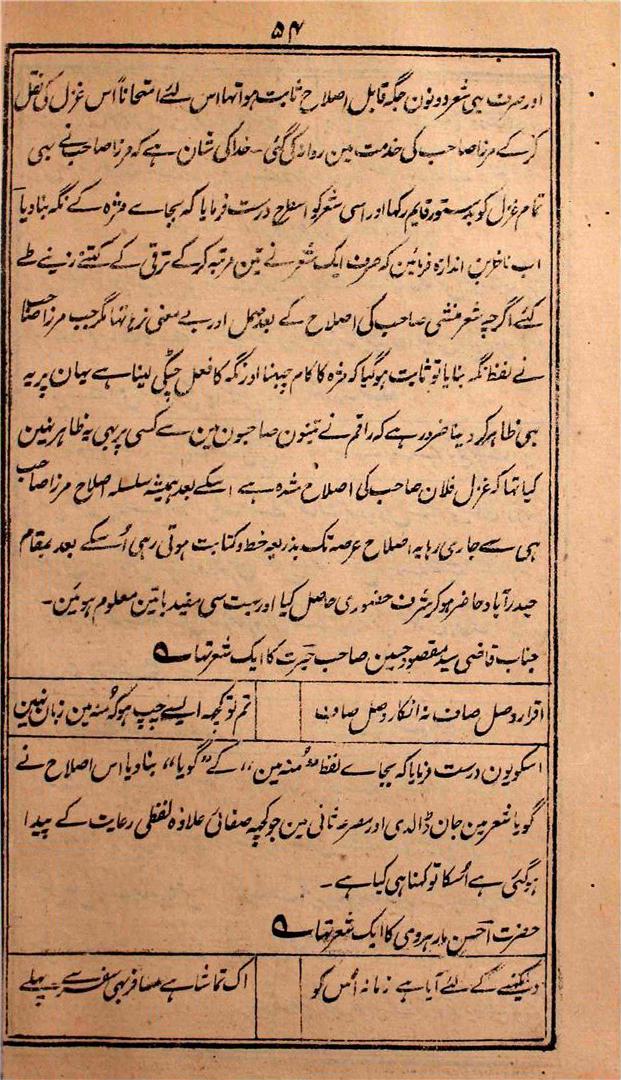 ۵۴
اور صرف یہی شعر دونون جگہ قابل اصلاح ثابت ہوا تہا اس لئے امتحاناً اس غزل کی نقل
کر کے مرزا صاحب کی خدمت مین روانہ کی گئی۔ خدا کی شان ہے کہ مرزا صاحب نے بہی
تمام غزل کو بدستور قایم رکہا اور اسی شعر کو اسطرح درست فرمایا کہ بجاے مژہ کے نگہ بنا دیا
اب ناظرین اندازہ فرمائین کہ صرف ایک شعر نے تین مرتبہ کر کے ترقی کے کتنے زینے طے
کئے اگرچہ شعر منشی صاحب کی اصلاح کے بعد مہمل اور بے معنی نرہا تہا مگر جب مرزا صاحب
نے لفظ نگہ بنایا تو ثابت ہوگیا کہ مژہ کا کام چبہنا اور نگہ کا فعل چٹکی لینا ہے یہان پر یہ
بہی ظاہر کر دینا ضرور ہے کہ راقم نے تینون صاحبون مین سے کسی پر بہی یہ ظاہر نہین
کیا تہا کہ غزل فلان صاحب کی اصلاح شدہ ہے اسکے بعد ہمیشہ سلسلہ اصلاح مرزا صاحب
ہی سے جاری رہا یہ اصلاح عرصہ تک بذریعہ خط و کتابت ہوتی رہی اُسکے بعد بمقام
حیدرآباد حاضر ہو کر شرف حضوری حاصل کیا اور بہت سی مفید باتین معلوم ہوئین۔
جناب قاضی سید مقصود حسین صاحب حیرت کا ایک شعر تہا ؎
اقرار وصل صاف نہ انکار وصل صاف تم تو کچہہ ایسے چپ ہو کہ مُنہ مین زبان نہین
اسکو یون درست فرمایا کہ بجاے لفظ ”مُنہ مین“ کے ”گویا“ بنا دیا اس اصلاح نے
گویا شعر مین جان ڈالدی اور مصرعہ ثانی مین جو کچہہ صفائی علاوہ لفظی رعایت کے پیدا
ہوگئی ہے اُسکا تو کہنا ہی کیا ہے۔
حضرت احسن مارہروی کا ایک شعر تہا ؎
دیکہنے کے لئے آیا ہے زمانہ اُس کو اک تماشا ہے مسافر بہی سفر سے پہلے